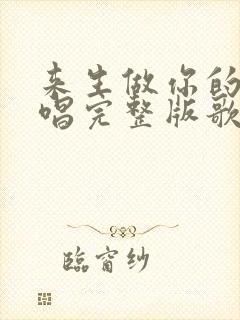 来生做你的
唱完整版歌
臨窗纱